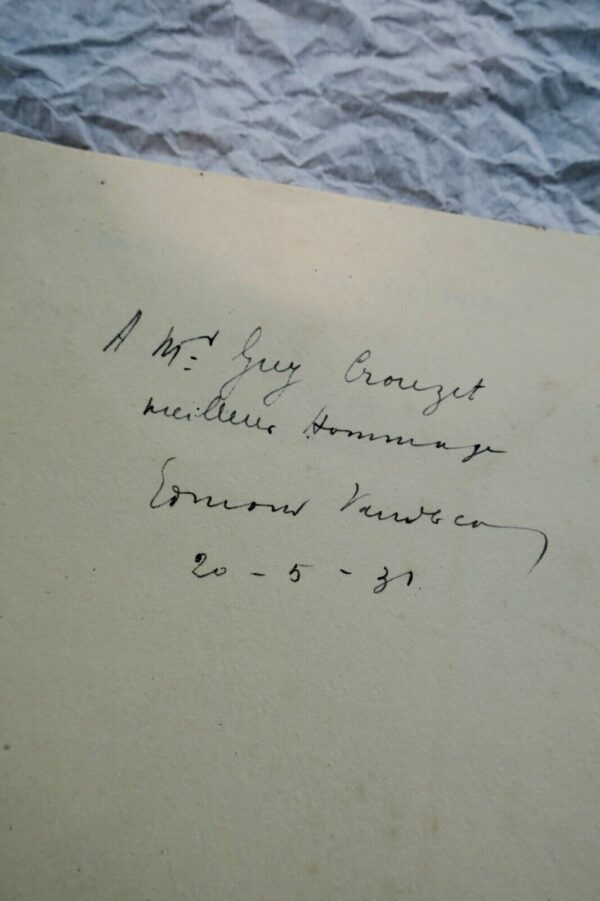 A Mr Guy Crouzet
meilleur Hommage
Edmond
20 - 5 - 31